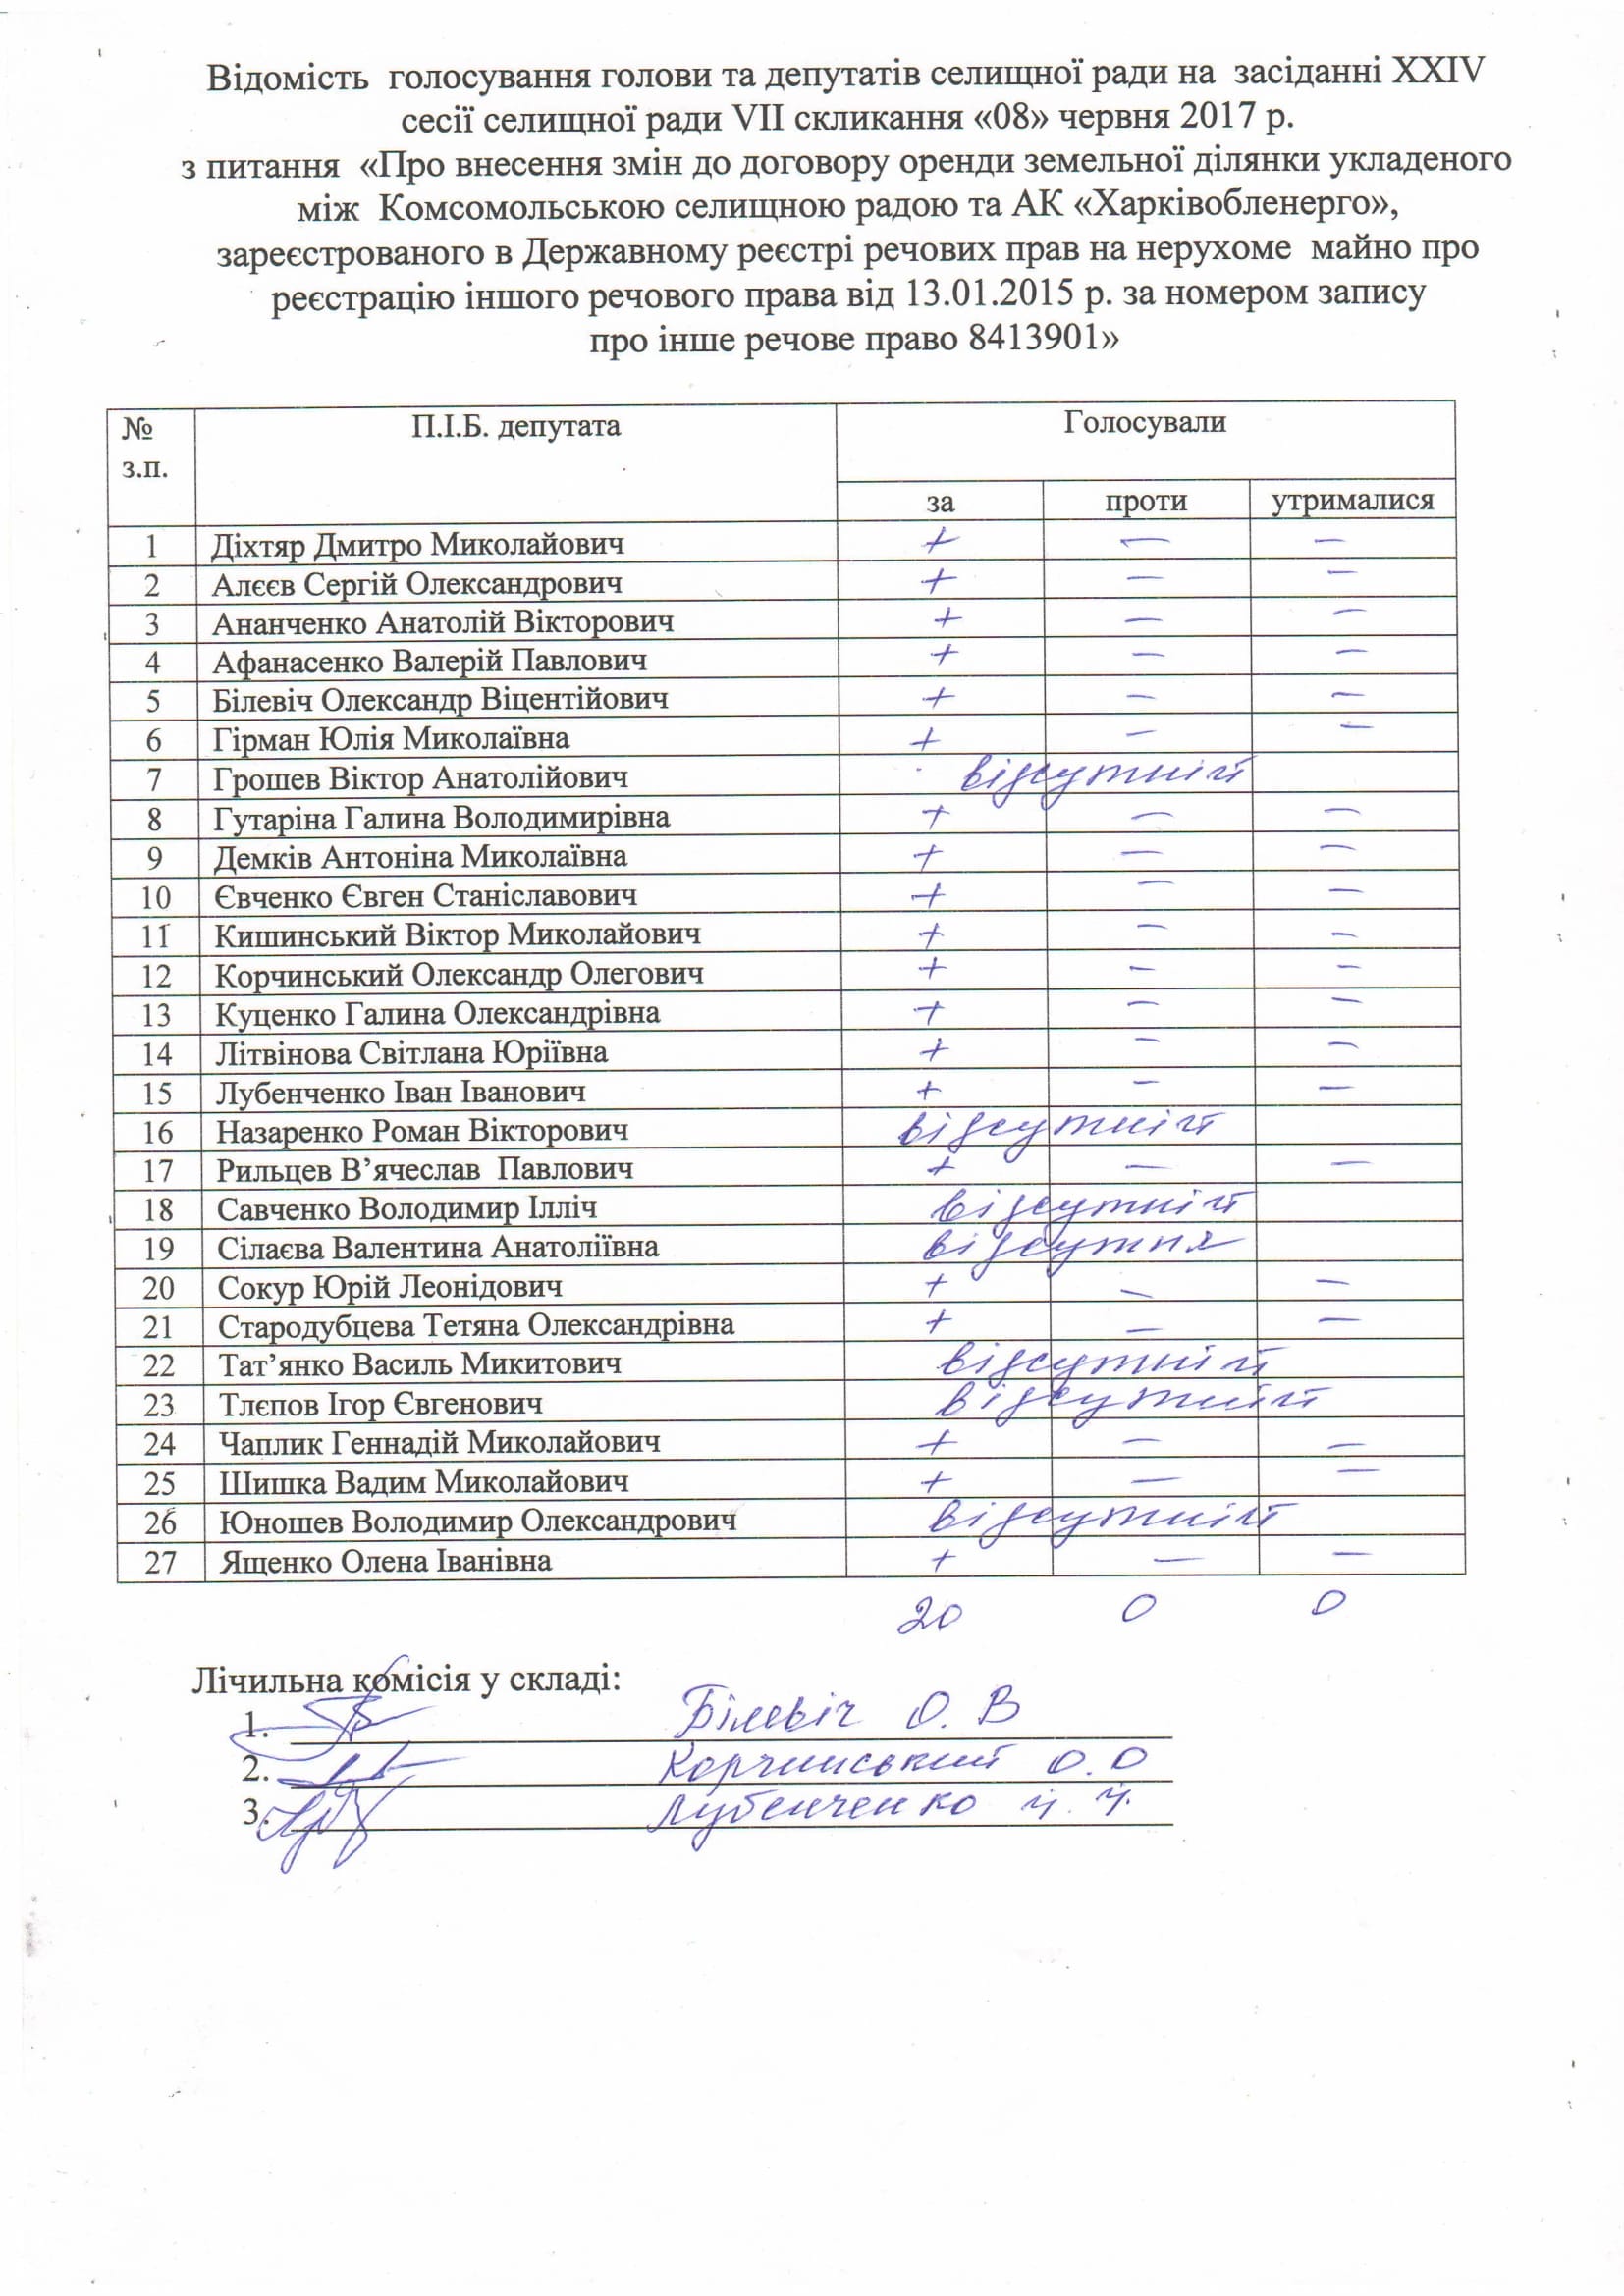 Відомість голосування голови та депутатів селищної ради на засіданні XXIV
сесії селищної ради VII скликання «08» червня 2017 р.
з питання «Про внесення змін до договору оренди земельної ділянки укладеного
між Комсомольською селищною радою та АК «Харківобленерго»,
зареєстрованого в Державному реєстрі речових прав на нерухоме майно про
реєстрацію іншого речового права від 13.01.2015 р. за номером запису
про інше речове право 8413901»
№ з.п. П.І.Б. депутата Голосували
за проти утрималися
1 Діхтяр Дмитро Миколайович + — —
2 Алєєв Сергій Олександрович + — —
3 Ананченко Анатолій Вікторович + — —
4 Афанасенко Валерій Павлович + — —
5 Білевіч Олександр Віцентійович + — —
6 Гірман Юлія Миколаївна + — —
7 Грошев Віктор Анатолійович відсутній
8 Гутаріна Галина Володимирівна + — —
9 Демків Антоніна Миколаївна + — —
10 Євченко Євген Станіславович + — —
11 Кишинський Віктор Миколайович + — —
12 Корчинський Олександр Олегович + — —
13 Куценко Галина Олександрівна + — —
14 Літвінова Світлана Юріївна + — —
15 Лубенченко Іван Іванович + — —
16 Назаренко Роман Вікторович відсутній
17 Рильцев В’ячеслав Павлович + — —
18 Савченко Володимир Ілліч відсутній
19 Сілаєва Валентина Анатоліївна відсутня
20 Сокур Юрій Леонідович + — —
21 Стародубцева Тетяна Олександрівна + — —
22 Тат’янко Василь Микитович відсутній
23 Тлєпов Ігор Євгенович відсутній
24 Чаплик Геннадій Миколайович + — —
25 Шишка Вадим Миколайович + — —
26 Юношев Володимир Олександрович відсутній
27 Ященко Олена Іванівна + — —
20 0 0
Лічильна комісія у складі:
1. Білевіч О. В
2. Корчинський О.О
3. Лубенченко І. І.